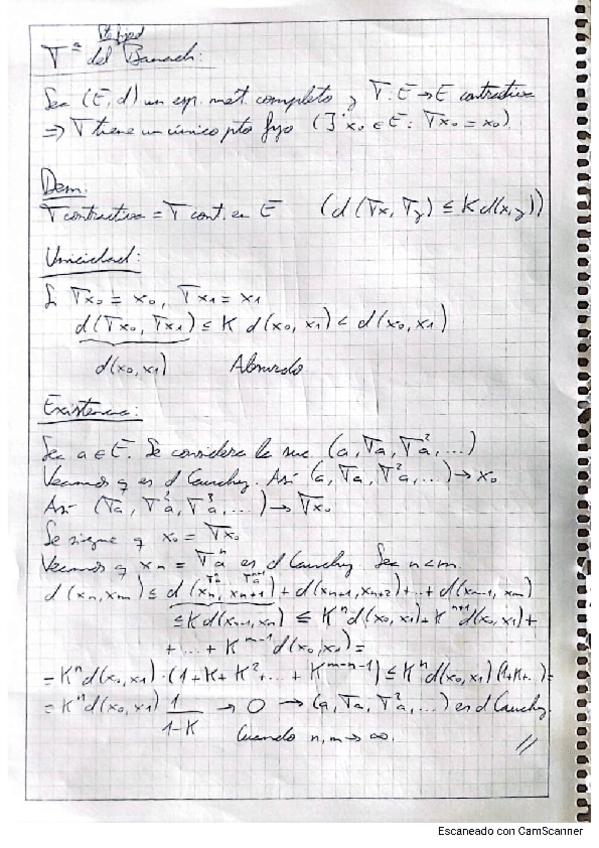 Pto fijo
Tª del Banach:
Sea (E, d) un esp. mét. completo y T: E → E contractiva
⇒ T tiene un único pto fijo (∃! x₀ ∈ E: Tx₀ = x₀)
Dem:
T contractiva = T cont. en E (d(Tx, Ty) ≤ K d(x,y))
Unicidad:
Si Tx₀ = x₀, Tx₁ = x₁
d(Tx₀, Tx₁) ≤ K d(x₀, x₁) < d(x₀, x₁)
d(x₀, x₁) Absurdo
Existencia:
Sea a ∈ E. Se considera la suc. (a, Ta, T²a, ...)
Veamos q es d Cauchy. Así (a, Ta, T²a, ...) → x₀
Así (Ta, T²a, T³a, ...) → Tx₀
Se sigue q x₀ = Tx₀
Veamos q xₙ = Tⁿa es d Cauchy. Sea n < m.
Tⁿa Tⁿ⁺¹a
d(xₙ, xₘ) ≤ d(xₙ, xₙ₊₁) + d(xₙ₊₁, xₙ₊₂) + ... + d(xₘ₋₁, xₘ)
≤ K d(xₙ₋₁, xₙ) ≤ Kⁿ d(x₀, x₁) + Kⁿ⁺¹ d(x₀, x₁) +
+ ... + Kᵐ⁻¹ d(x₀, x₁) =
= Kⁿ d(x₀, x₁) · (1 + K + K² + ... + Kᵐ⁻ⁿ⁻¹) ≤ Kⁿ d(x₀, x₁) (1+K+..) =
= Kⁿ d(x₀, x₁) 1/(1-K) → 0 → (a, Ta, T²a, ...) es d Cauchy.
Cuando n, m → ∞. //
Escaneado con CamScanner